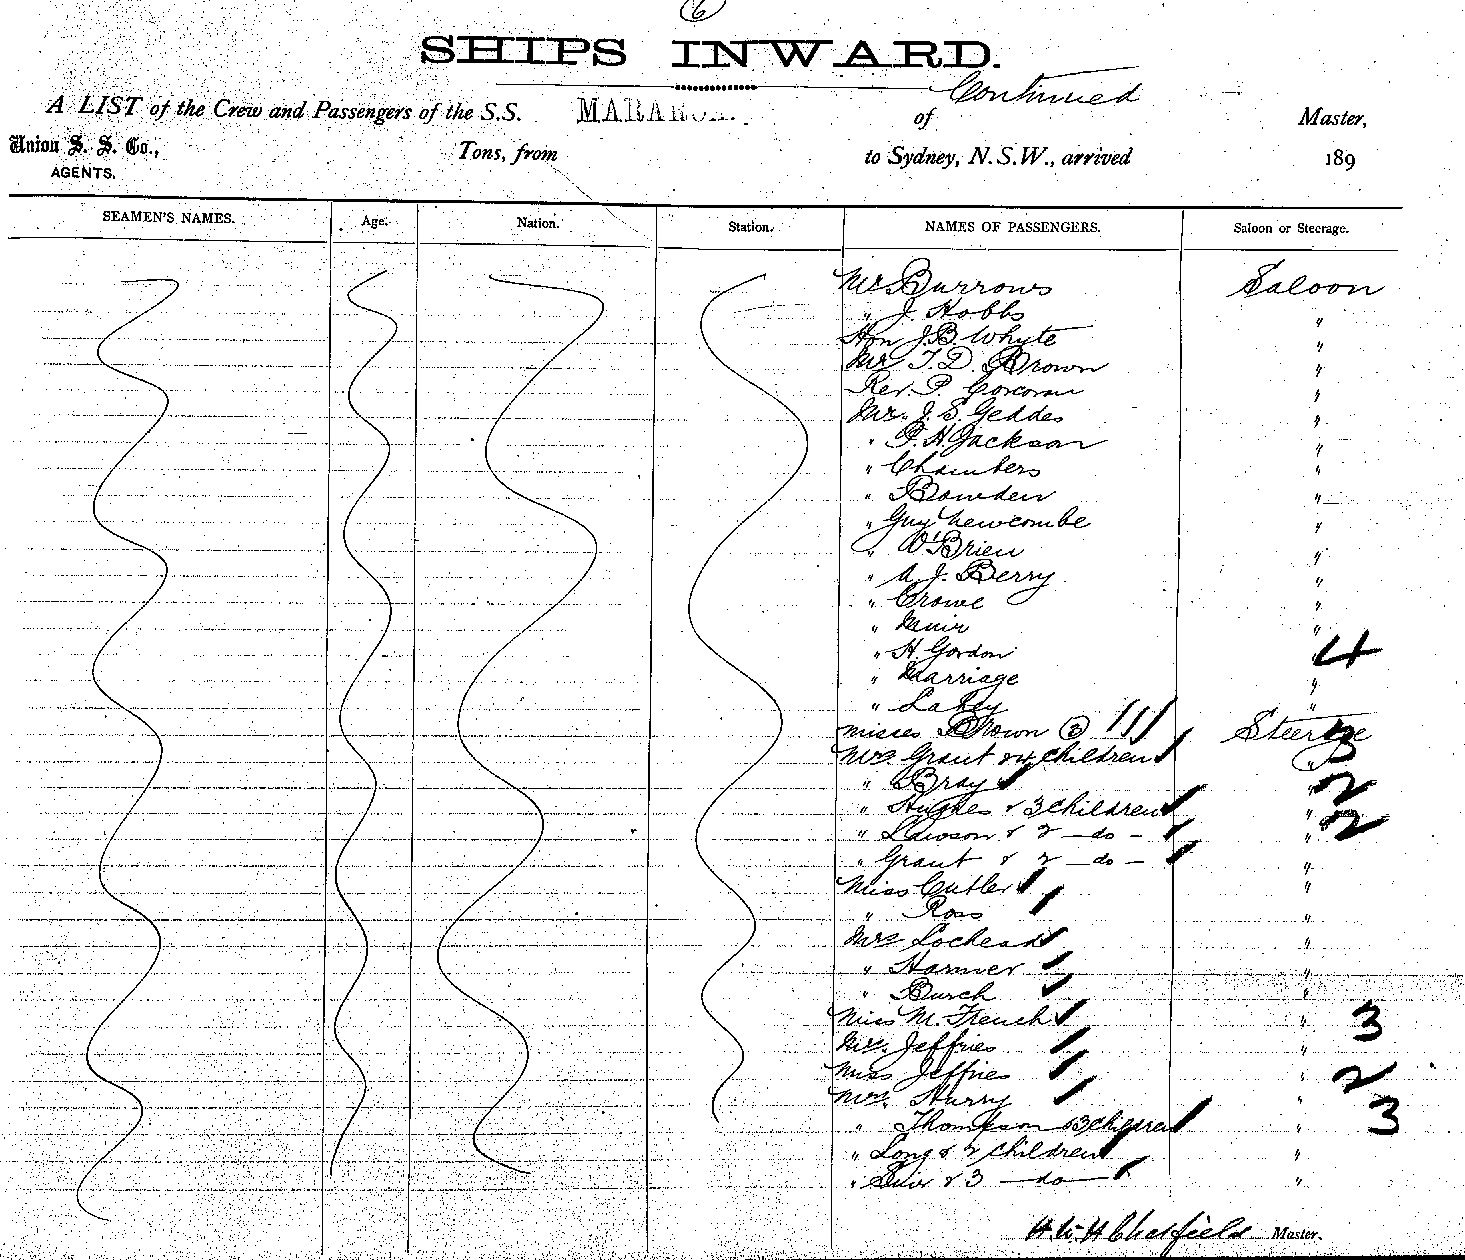 6
SHIPS INWARD.
Continued
A LIST of the Crew and Passengers of the S.S. MARAROA. of Master,
Union S. S. Co., Tons, from to Sydney, N.S.W., arrived 189
AGENTS.
SEAMEN'S NAMES. Age. Nation. Station. NAMES OF PASSENGERS. Saloon or Steerage.
Mr Burrows Saloon
" J. Hobbs "
Hon J.B. Whyte "
Mr T. D. Brown "
Rev. P. Corcoran "
Mr. J. S. Geddes "
" F. H. Jackson "
" Chambers "
" Bowden "
" Guy Newcombe "
" O'Brien "
" A. J. Berry "
" Crowe "
" Muir "
" H. Gordon " 4
" Marriage "
" Lahey "
Misses Brown (3) Steerage 3
Mrs Grant & 4 children "
" Bray " 2
" Hughes & 3 children "
" Lawson & 2 - do - " 2
" Grant & 2 - do - "
Miss Cutler "
" Ross "
Mrs Lochead "
" Harmer "
" Burch "
Miss M. French " 3
Mr. Jeffries "
Miss Jeffries " 2
Mrs. Hurry "
" Thompson & 3 children " 3
" Long & 2 children "
" & 3 - do - "
Chatfield Master.